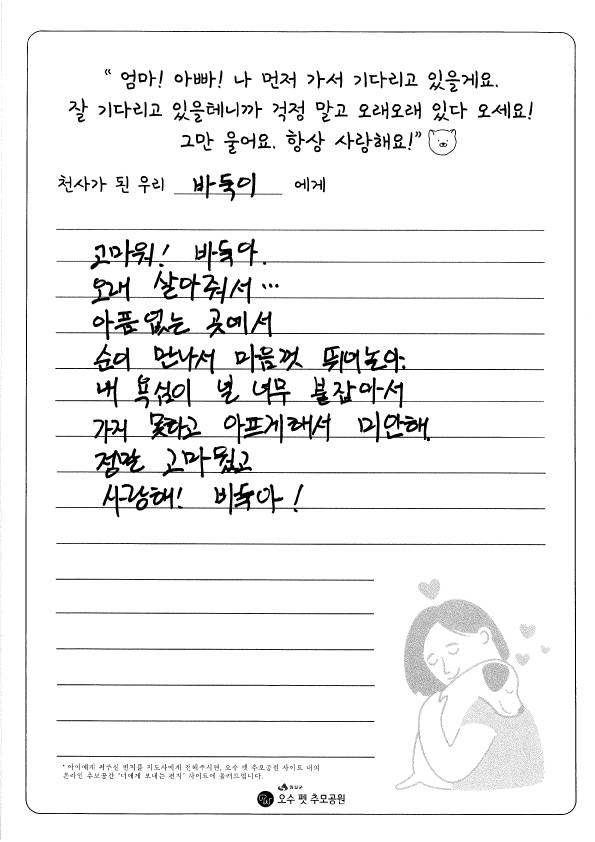 “ 엄마! 아빠! 나 먼저 가서 기다리고 있을게요.
잘 기다리고 있을테니까 걱정 말고 오래오래 있다 오세요!
그만 울어요. 항상 사랑해요!”
천사가 된 우리 바둑이 에게
고마워! 바둑아.
오래 살아줘서…
아픔없는 곳에서
순이 만나서 마음껏 뛰어놀아.
내 욕심이 널 너무 붙잡아서
가지 못하고 아프게해서 미안해.
정말 고마웠고
사랑해! 바둑아!
* 아이에게 써주신 편지를 지도사에게 전해주시면, 오수 펫 추모공원 사이트 내의
온라인 추모공간 '너에게 보내는 편지' 사이트에 올려드립니다.
임실군
오수 펫 추모공원